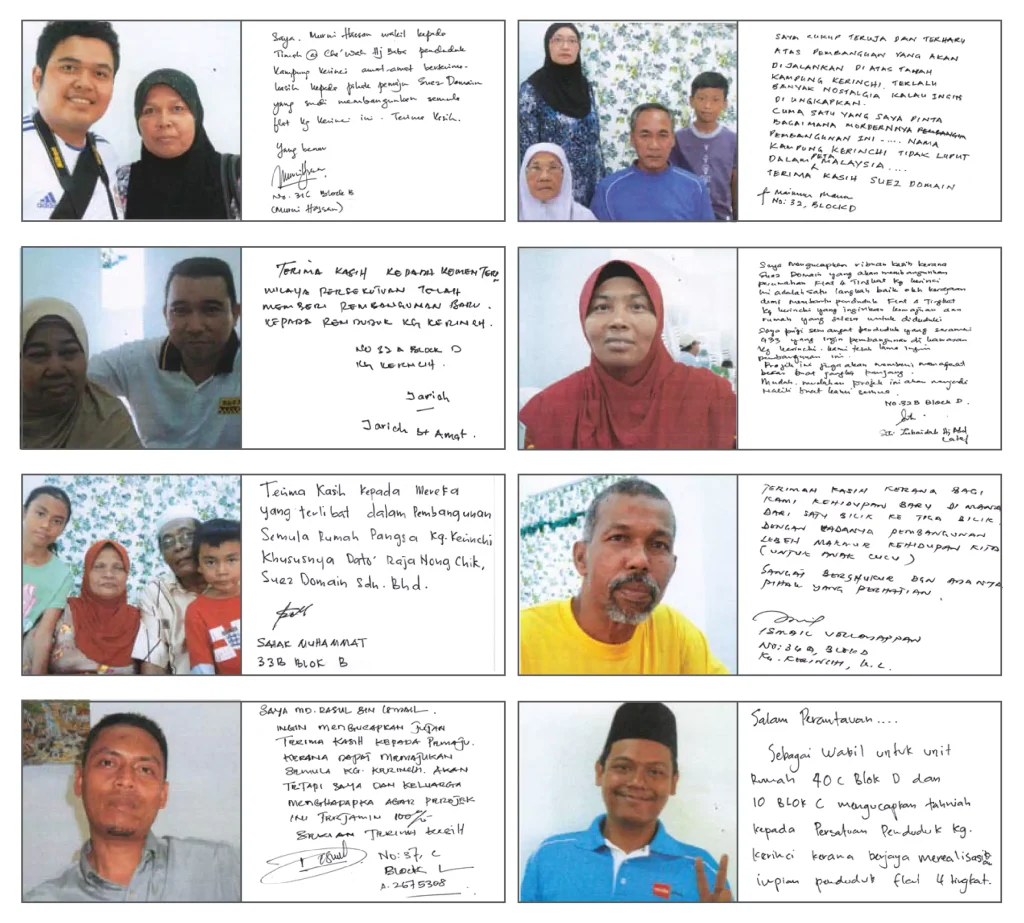 Saya, Murni Hassan wakil kepada
Timah @ Che'Wah Hj Baba penduduk
Kampung kerinci amat-amat berterima
kasih kepada pihak pemaju Suez Domain
yang sudi membangunkan semula
flat kg kerinci ini. Terima Kasih.
Yang benar
No. 31C Block B
(Murni Hassan)
SAYA CUKUP TERUJA DAN TERHARU
ATAS PEMBANGUAN YANG AKAN
DIJALANKAN DI ATAS TANAH
KAMPUNG KERINCHI. TERLALU
BANYAK NOSTALGIA KALAU INGIN
DI UNGKAPKAN.
CUMA SATU YANG SAYA PINTA
BAGAIMANA MORDERNNYA
PEMBANGUNAN INI..... NAMA
KAMPUNG KERINCHI TIDAK LUPUT
DALAM PETA MALAYSIA....
TERIMA KASIH SUEZ DOMAIN
No: 32, BLOCK D
TERIMA KASIH KEPADA KEMENTERI
WILAYA PERSEKUTUAN TELAH
MEMBERI PEMBANGUNAN BARU.
KEPADA PENDUDUK KG KERINCHI.
NO 32 A BLOCK D
KG KERINCHI.
Jariah
Jariah Bt Amat.
Saya mengucapkan ribuan kasih kerana
Suez Domain yang akan membangunkan
perumahan Flat 4 Tingkat Kg kerinci
Ini adalah satu langkah baik oleh kerajaan
demi membantu penduduk Flat 4 Tingkat
Kg kerinchi yang inginkan kemajuan dan
rumah yang selesa untuk diduduki
Saya puji semangat penduduk yang seramai
433 yang ingin pembangunan di kawasan
Kg kerinchi. kami telah lama ingin
pembangunan ini.
Projek ini juga akan memberi manafaat
besar buat jangka panjang.
Mudah. mudahan projek ini akan menjadi
realiti buat kami semua.
No. 32B Block D.
Siti Zubaidah Hj Abd
Latif
Terima Kasih Kepada Mereka
Yang terlibat dalam Pembangunan
Semula Rumah Pangsa Kg. Kerinchi
Khususnya Dato' Raja Nong Chik,
Suez Domain Sdn. Bhd.
SALAK MUHAMMAT
33B BLOK B
TERIMAH KASIH KERANA BAGI
KAMI KEHIDUPAN BARU DI MANA
DARI SATU BILIK KE TIGA BILIK,
DENGAN PEMBANGUNAN
LEBEH MAKMUR KEHIDUPAN KITA
(UNTUK ANAK CUCU)
SANGAT BERSHUKUR DGN ADANYA
PIHAK YANG PERHATIAN.
ISMAIL VELLASAPPAN
NO: 36 BLOK D
KG. KERINCHI, K.L.
SAYA MD. RASUL BIN ISMAIL.
INGIN MENGUCAPKAN JUTAAN
TERIMA KASIH KEPADA PEMAJU.
KERANA DAPAT MEMAJUKAN
SEMULA KG. KERINCHI. AKAN
TETAPI SAYA DAN KELUARGA
MENGHARAPKA AGAR PEROJEK
INI TERJAMIN 100%
SEKIAN TERIMA KASIH
NO: 37, C
BLOCK L
A. 2675308
Salam Perantauan....
Sebagai Wakil untuk unit
Rumah 40 C Blok D dan
10 BLOK C mengucapkan tahniah
kepada Persatuan Penduduk Kg.
kerinci kerana berjaya merealisasi
impian penduduk flat 4 tingkat.